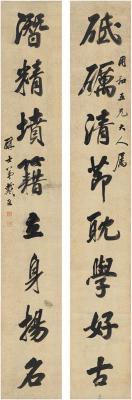 砥礪清節耽學好古
用和五兄大人屬
潛精墳籍立身揚名
醇士弟戴熙